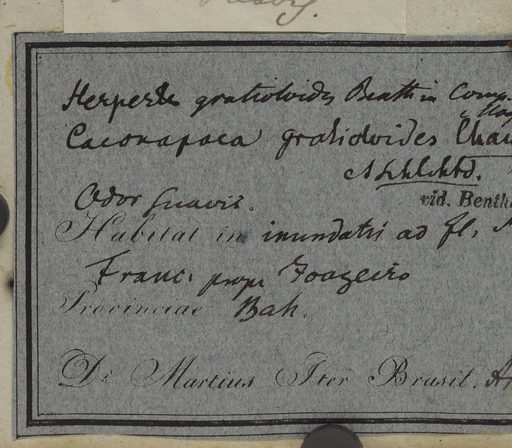 Herpestes gratioloides Benth in Comp.
Caconapaea gratioloides Cham
Schlchtd.
Odor suavis.
vid. Benth
Habitat in inundatis ad fl.
Franc. prope Joazeiro
Provinciae Bah.
Dr. Martius Iter Brasil.